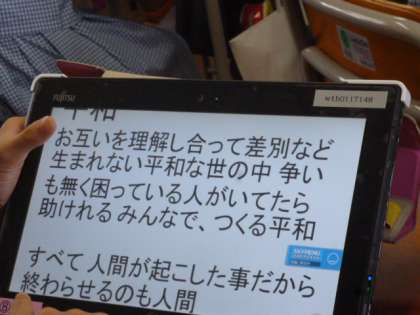 FUJITSU
平和
お互いを理解し合って差別など
生まれない平和な世の中 争い
も無く困っている人がいてたら
助けれる みんなで、つくる平和
すべて 人間が起こした事だから
終わらせるのも人間
SKYMENU
⑧